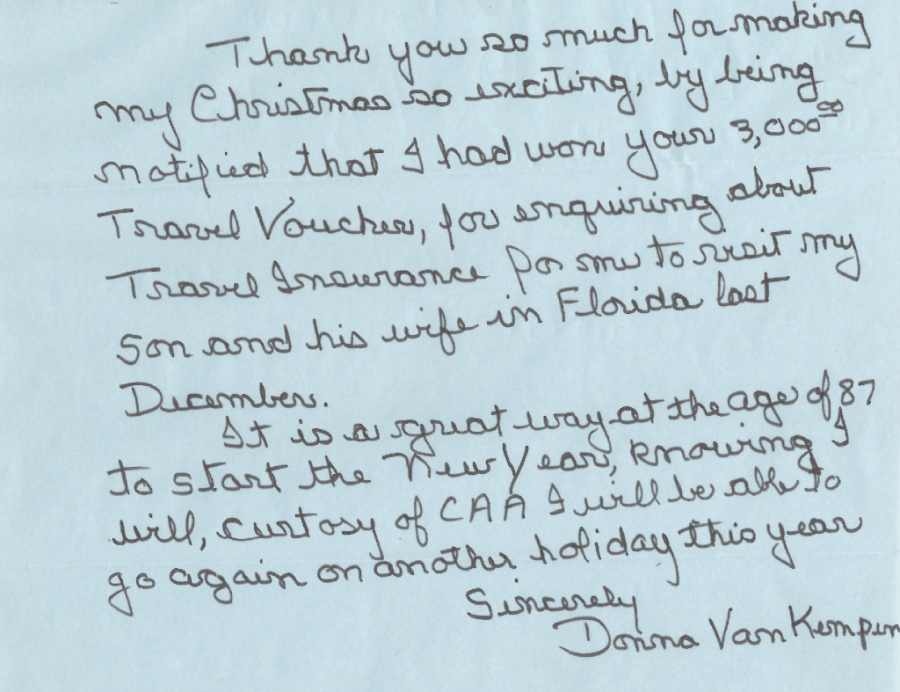 Thank you so much for making
my Christmas so exciting, by being
notified that I had won your 3,000.00
Travel Voucher, for enquiring about
Travel Insurance for me to visit my
son and his wife in Florida last
December.
It is a great way at the age of 87
to start the New Year, knowing I
will, curtosy of CAA I will be able to
go again on another holiday this year
Sincerely
Donna Van Kempen